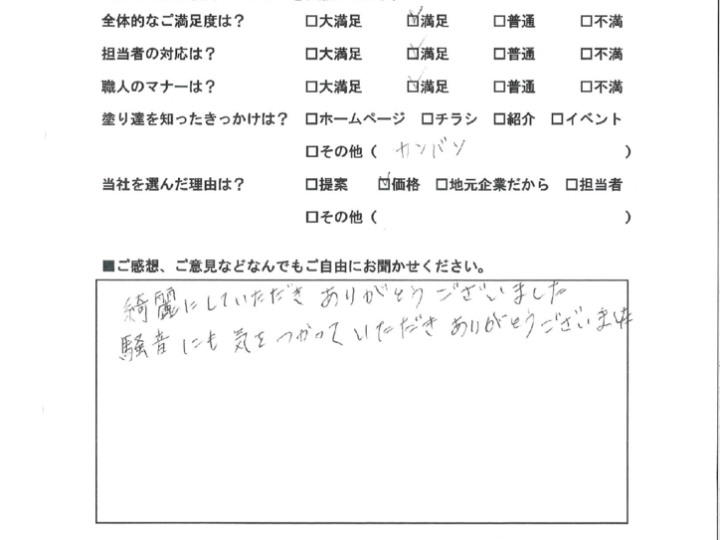 全体的なご満足度は? □大満足 ☑満足 □普通 □不満
担当者の対応は? □大満足 ☑満足 □普通 □不満
職人のマナーは? □大満足 ☑満足 □普通 □不満
塗り達を知ったきっかけは? □ホームページ □チラシ □紹介 □イベント
□その他 ( カンバン )
当社を選んだ理由は? □提案 ☑価格 □地元企業だから □担当者
□その他 ( )
■ご感想、ご意見などなんでもご自由にお聞かせください。
綺麗にしていただき ありがとうございました
騒音にも気をつかっていただき ありがとうございました